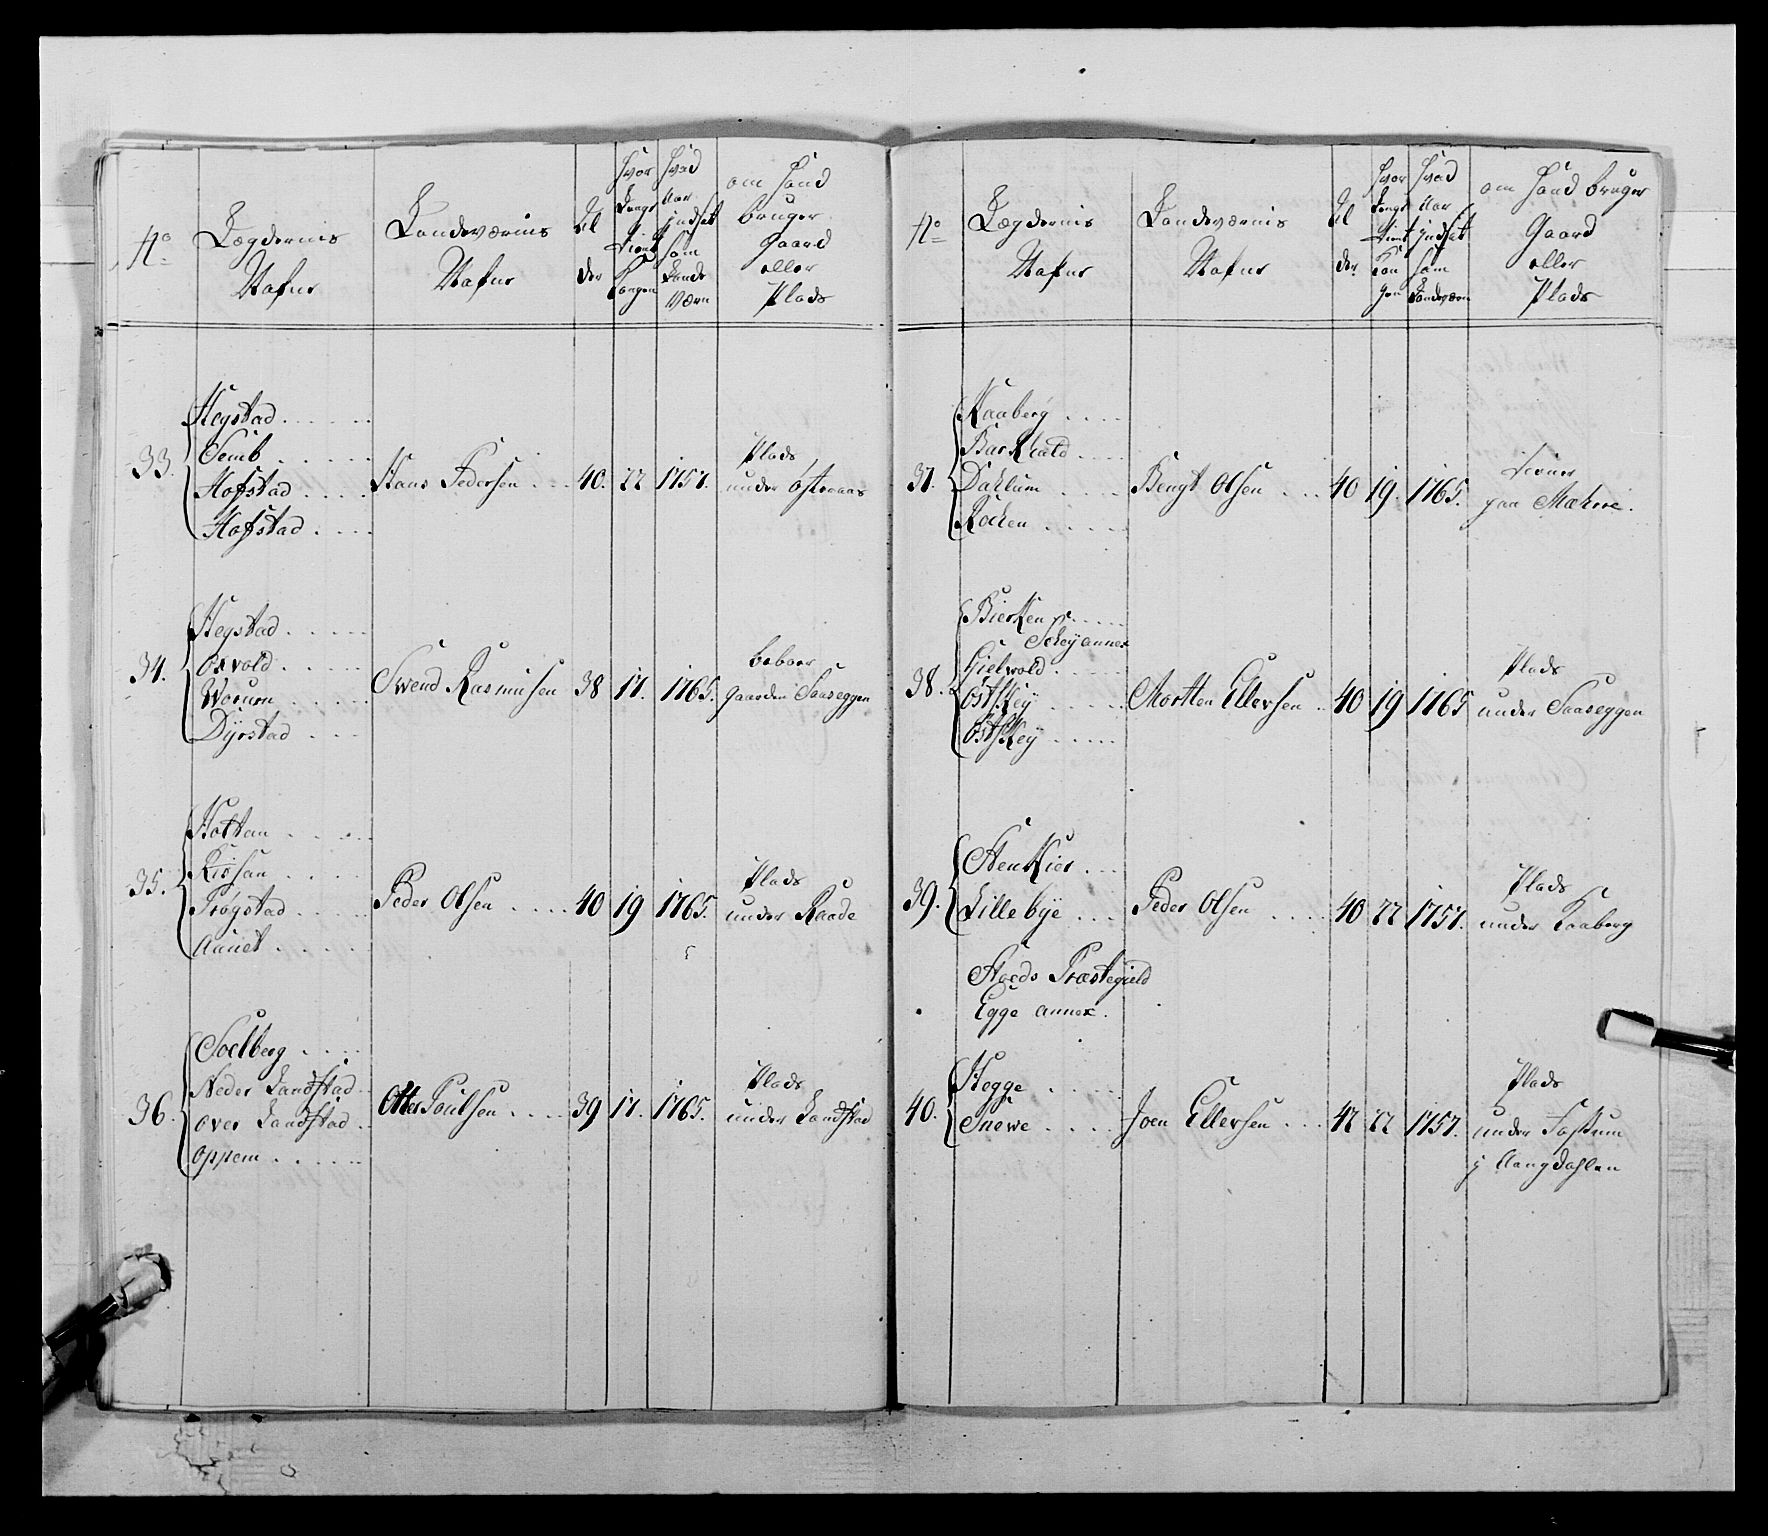 No
Lægdernis
Nafne
Landeværnis
Nafne
Al
der
Hvor
Længe
Tient
Kongen
Hvad
Aar
Indsat
som
Lande
Værn
om Hand
bruger
Gaard
eller
Plads
33.
Hegstad
Semb
Hofstad
Hofstad
Hans Pedersen
40.
22
1757.
Plads
under Østeraas
34.
Hegstad
Oxvold
Worum
Dÿrstad
Swend Rasmusen
38
17.
1765.
beboer
gaarden Saaseggen
35.
Hottan
Rishan
Trøgstad
Aunet
Peder Olsen
40
19
1765.
Plads
under Raade
36.
Soelberg
Neder Landstad
over Landstad
oppem
Otter Poulsen
39
17.
1765.
Plads
under Landstad
No
Lægdernis
Nafne
Landeværnis
Nafne
Al
der.
Hvor
Længe
Tient
Kon
gen
Hvad
Aar
Indsat
som
Landeværn
om Hand bruger
Gaard
eller
Plads
37.
Kaaberg
Barkhald
Dahlum
Rochen
Bengt Olsen
40
19.
1765.
tiener
paa Mæhre.
38.
Bierken
Skeÿ annex
Gielwold
Østskeÿ
Østskeÿ
Mortten Ellevsen
40
19
1765
Plads
under Saaseggen
39.
Stenkier
Lillebÿe
Peder Olsen
40
22
1757.
Plads
under Kaaberg
Stoeds Præstegield
Egge annex.
40.
Hegge
Snewe
Joen Ellevsen
42
22
1757.
Plads
under Fossum
j Aangdahlen